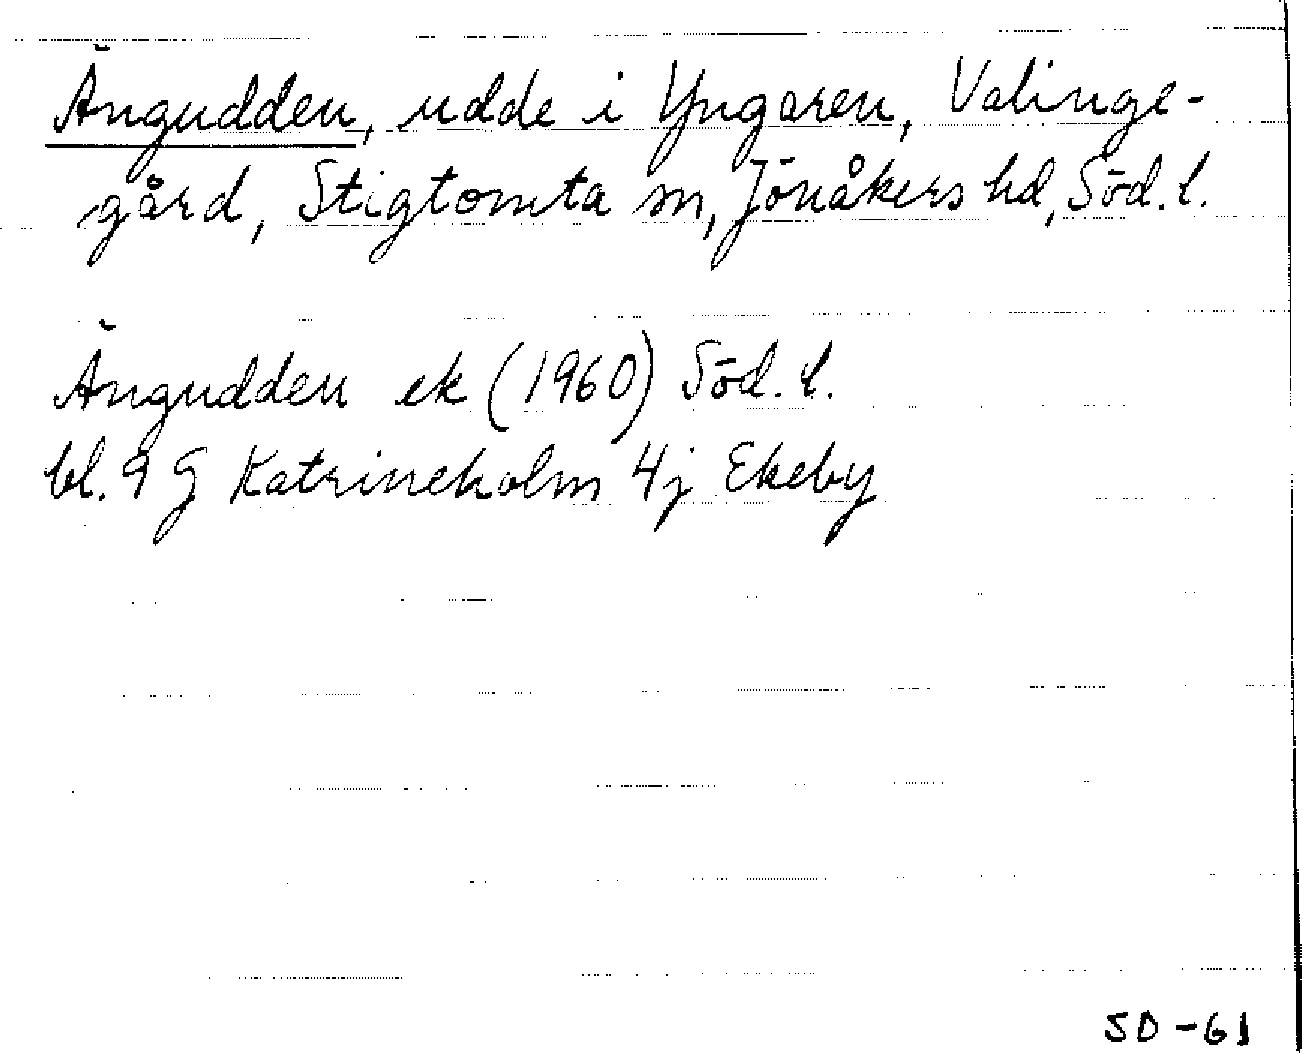 Ängudden, udde i Yngaren, Valinge-
gård, Stigtomta sn, Jönåkers hd, Söd. l.
Ängudden ek (1960) Söd. l.
bl. 9 G Katrineholm 4j Ekeby
SD-61